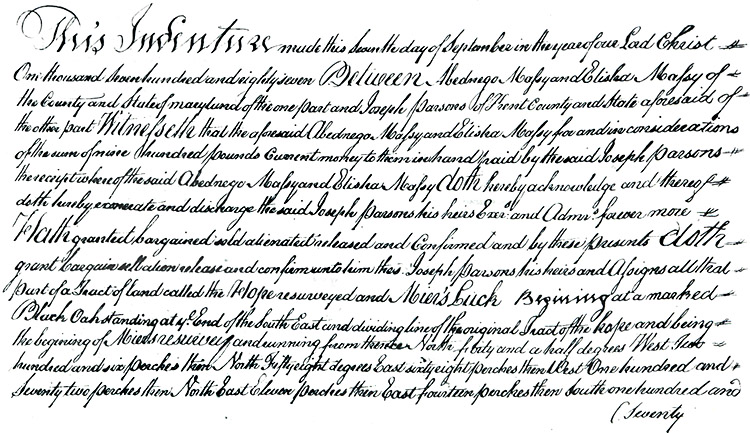 This Indenture made this seventh day of September in the year of our Lord Christ
One thousand seven hundred and eighty seven Between Abednego Massy and Elisha Massy of
the County and State of maryland of the one part and Joseph Parsons of Kent County and State aforesaid of
the other part Witnesseth that the aforesaid Abednego Massy and Elisha Massy for and in considerations
of the sum of nine hundred pounds Current money to them in hand paid by the said Joseph Parsons
the receipt where of the said Abednego Massy and Elisha Massy doth hereby acknowledge and thereof
doth hereby exonerate and discharge the said Joseph Parsons his heirs Exrs and Admrs forever more
Hath granted bargained sold alienated released and Confirmed and by these presents doth
grant bargain sell alien release and confirm unto him the sd Joseph Parsons his heirs and Assigns all that
part of a Tract of land called the Hope resurveyed and Miers Luck Begining at a marked
Black Oak standing at ye End of the South East and dividing line of the original Tract of the hope and being
the begining of Miers resurvey and running from thence North forty and a half degrees West Two
hundred and six perches then North Fifty eight degrees East sixty eight perches then West One hundred and
Seventy two perches then North East Eleven perches then East fourteen perches then South one hundred and
(Seventy